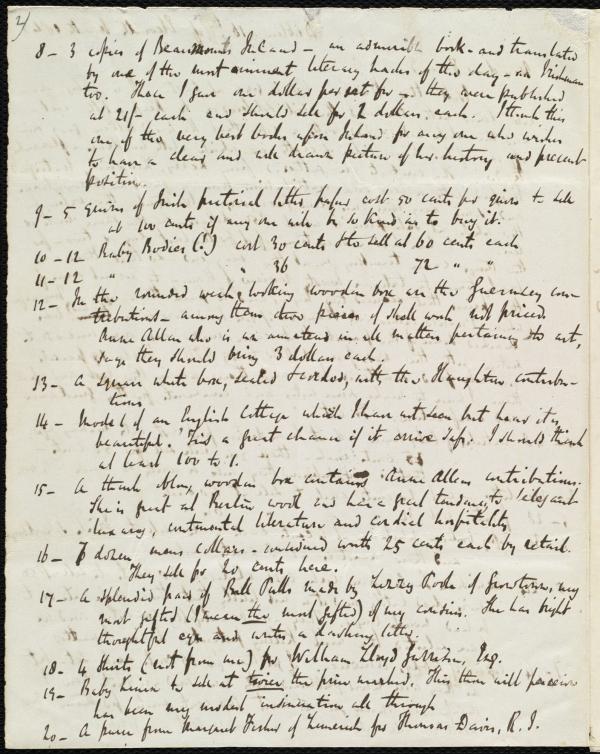 2)
8 - 3 copies of Beaumont's Ireland - an admirable book - and translated
by one of the most eminent literary hacks of the day - an Irishman
too. These I gave one dollar per set for - they were published
at 21/- each and should sell for 2 dollars each. I think this
one of the very best books upon Ireland for any one who wishes
to have a clear and well drawn picture of her history and present
position.
9 - 5 quires of Irish pictorial letter paper cost 50 cents per quire to sell
at 100 cents if any one will be so kind as to buy it.
10 - 12 Baby Bodies (!) cost 30 cents & to sell at 60 cents each
11 - 12 " " 36 72 " "
12 - In the rounded weak looking wooden box are the Guernsey con-
tributions - among them two pieces of shell work not priced
Anne Allen who is an amateur in all matters pertaining to art,
says they should bring 3 dollars each.
13 - A square white box, sealed & corded, with the Haughton contribu-
tions
14 - Model of an English Cottage which I have not seen but hear it is
beautiful. Tis a great chance if it arrive safe. I should think
at least 100 to 1.
15 - A oblong wooden box contains Anne Allens contributions.
She is great at Berlin wool and has a great tendency to elegant
luxury, continental literature and cordial hospitality
16 - dozen mens collars - considered worth 25 cents each by retail.
They sell for 20 cents here.
17 - A splendid pair of Bell Pulls made by Lizzy Poole of Growtown, my
most gifted (I mean the most gifted) of my cousins. She has bright
thoughtful eyes and writes a dashing letter.
18 - 4 Shirts (not from me) for William Lloyd Garrison, Esq.
19 - Baby Linen to sell at twice the price marked. This thou will perceive
has been my modest insinuation all through
20 - A purse from Margaret Fisher of Limerick for Thomas Davis, R. I.